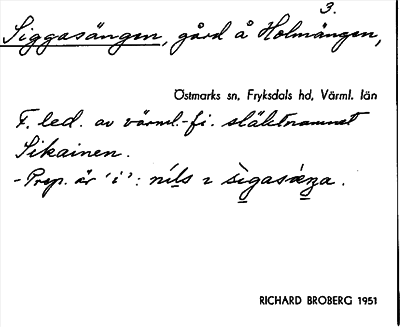 3.
Siggasängen, gård å Holmängen,
Östmarks sn, Fryksdals hd, Värml. län
F. led. av värml.-fi. släktnamnet
Sikainen.
- Prep. är 'i': nils ı sigasäŋa.
RICHARD BROBERG 1951